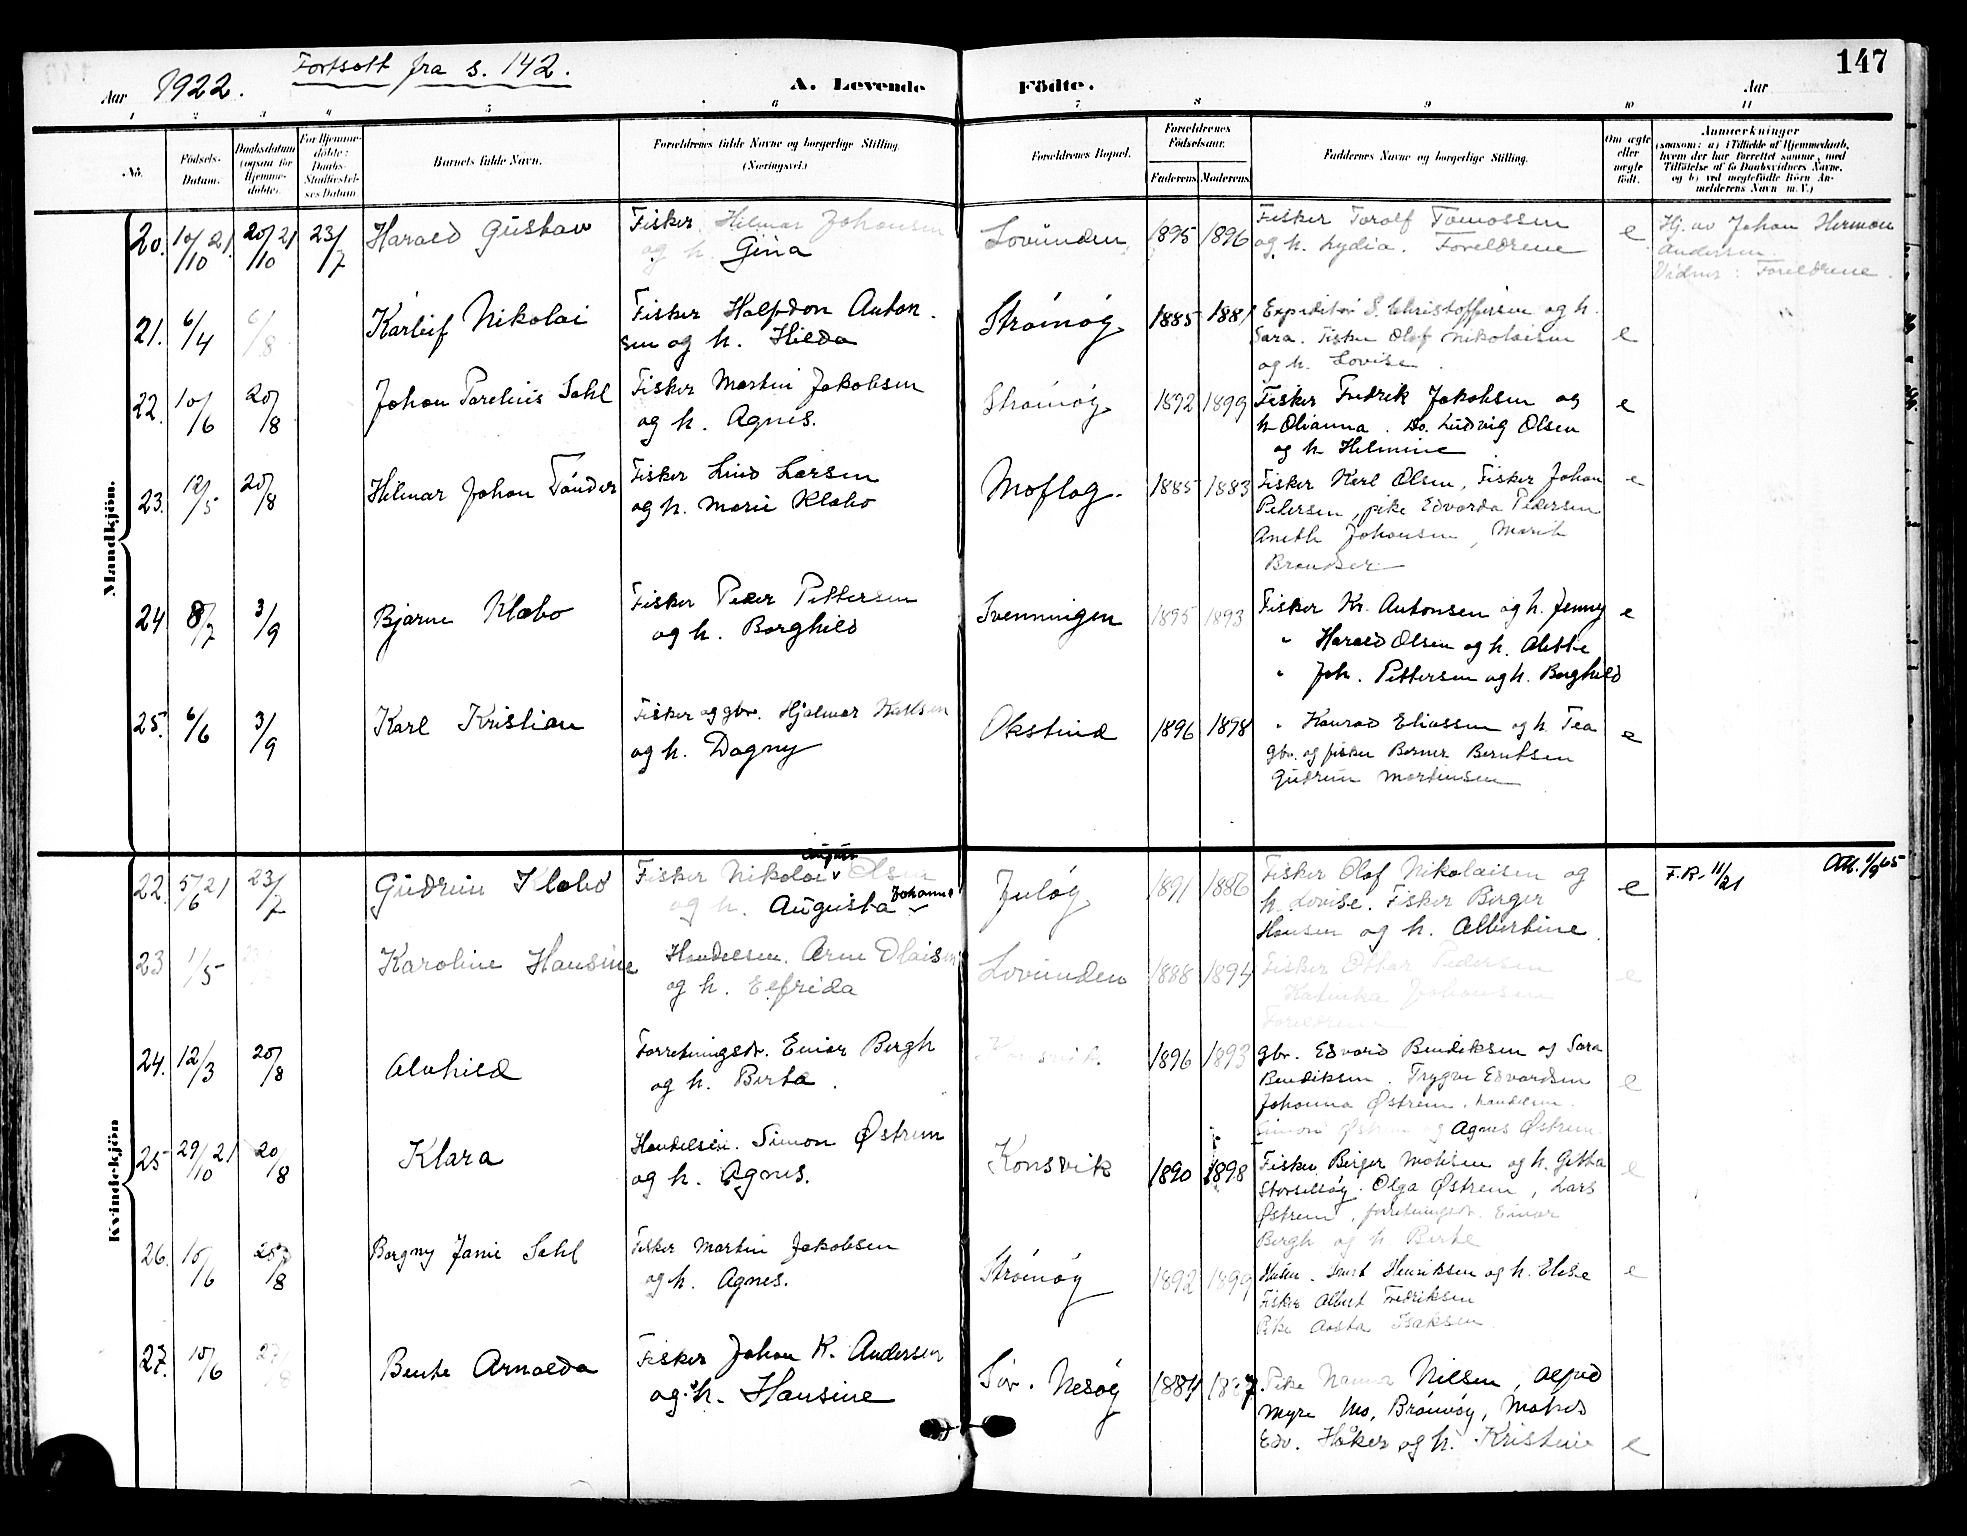 147
Fortsatt fra s. 142.
Aar 1922. A. Levende Födte. Aar
1 2 3 4 5 6 7 8 9 10 11
No.
Födsels-Datum.
Daabsdatum (ogsaa for Hjemmedöbte).
For Hjemmedöbte: Daabs-Stadfæstelses Datum.
Barnets fulde Navn.
Forældrenes fulde Navne og borgerlige Stilling. (Næringsvei.)
Forældrenes Bopæl.
Forældrenes Födselsaar.
Faderens Moderens
Faddernes Navne og borgerlige Stilling.
Om ægte eller uægte födt.
Anmærkninger
(saasom: a) i Tilfælde af Hjemmedaab, hvem der har forrettet samme, med Tilföielse af to Daabsvidners Navne, og b) ved uægtefödte Börn Anmelderens Navn m. V.)
Mandkjön.
20. 10/10 21. 20/10 21 23/7 Harald Gustav Fisker Hilmar Johansen Lovunden 1895 1896 Fisker Toralf Tomassen e Hj. av Johan Herman
og h. Gina og h. Lydia. Foreldrene Andersen.
Vidner: Foreldrene.
21. 6/4 6/8 Karleif Nikolai Fisker Halfdan Anton- Strömöy 1885 1881 Expeditör S. Christoffersen og h. e
sen og h. Hilda Sara. Fisker Olaf Nikolaisen
og h. Lovise.
22. 10/6 20/8 Johan Parelius Sahl Fisker Martin Jakobsen Strömöy 1892 1899 Fisker Fredrik Jakobsen og e
og h. Agnes. h. Olianna. Do. Ludvig Olsen
og h. Helmine
23. 12/5 20/8 Hilmar Johan Tönder Fisker Lind Larsen Moflag. 1885 1883 Fisker Karl Olsen, Fisker Johan e
og h. Marie Klæbo Pedersen, pike Edvarda Pedersen
Aneth Johansen, Marit
24 8/7 3/9 Bjarne Klæbo Fisker Peder Pettersen Svenningen 1895 1893 Fisker Kr. Antonsen og h. Jenny e
og h. Borghild " Harald Olsen og h. Alette
" Joh. Pettersen og h. Borghild
25. 6/6 3/9 Karl Kristian Fisker og gbr. Hjalmar Karlsen Okstind 1896 1898 " Konrad Eliassen og h. Tea e
og h. Dagny gbr. og fisker Berner Berntsen
Gudrun Martinsen
Kvindekjön
22. 5/6 21 23/7 Gudrun Klæbo Fisker Nikolai August Olsen Juløy 1891 1886 Fisker Olaf Nikolaisen og e F.R. 11/21 Att. 1/9 65
og h. Augusta Johanne h. Lovise. Fisker Birger
Hansen og h. Albertine.
23 1/5 Karoline Hansine Handelsm. Arne Olaisen Lovunden 1888 1894 Fisker Ottar Pedersen e
og h. Elfrida Katinka Johansen
Foreldrene
24. 12/3 20/8 Alvhild Forretningsdr. Einar Bergh Konsvik. 1896 1893 gbr. Edvard Bendiksen og Sara e
og h. Berta. Bendiksen. Trygve Edvardsen
Johanna Østrem. handelsm.
Simon Østrem og Agnes Østrem.
25 29/10 21 20/8 Klara Handelsm. Simon Østrem Konsvik 1890 1898 Fisker Birger Mohsen og h. Gitta e
og h. Agnes. Storselsöy. Olga Østrem, Lars
Østrem, forretningsdr. Einar
Bergh og h. Berte
26. 10/6 20/8 Borgny Janie Sahl Fisker Martin Jakobsen Strömöy 1892 1899 Henriksen og h. Elise e
og h. Agnes. Fisker Albert Fredriksen
Pike Aasta Isaksen
27. 10/6 27/8 Bente Arnolda Fisker Johan K. Andersen Sör. Nesöy 1884 1887. Pike Nanna Nielsen, Alfred
og h. Hansine Myre Mo, Brönnöy,
Edv. Håker og h. Kristine e